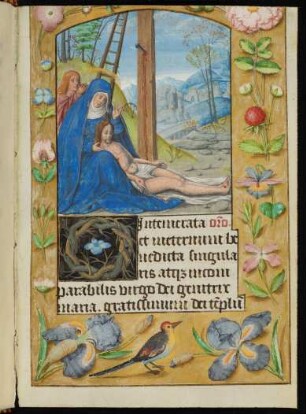 Intemerata oro.
et meternum be
nedicta singula
ris atqȝ incom
parabilis virgo dei genitrix
maria. gratissimum dei templu